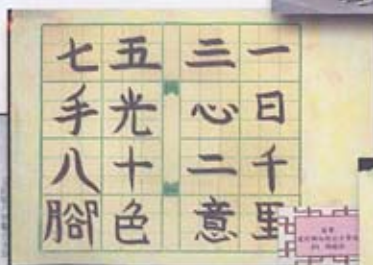 一日千里
三心二意
五光十色
七手八腳